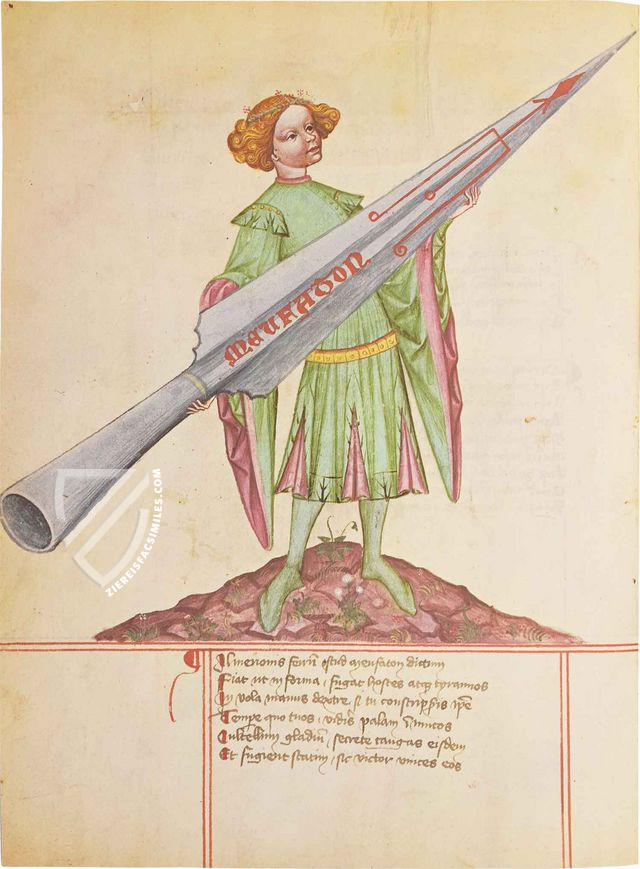 MEUFATON
ZIEREISFACSIMILES.COM
¶ Almerionis ferrū istud meufaton dictum
Fiat ut in forma, fugat hostes atqꝫ tyrannos
In vola manus dextre, si tu conscripseris ipse
Tempe quo tuos, videris palam inimicos
Cultellum gladiū, secrete tangas eisdem
Et fugient statim, sic victor vinces eos